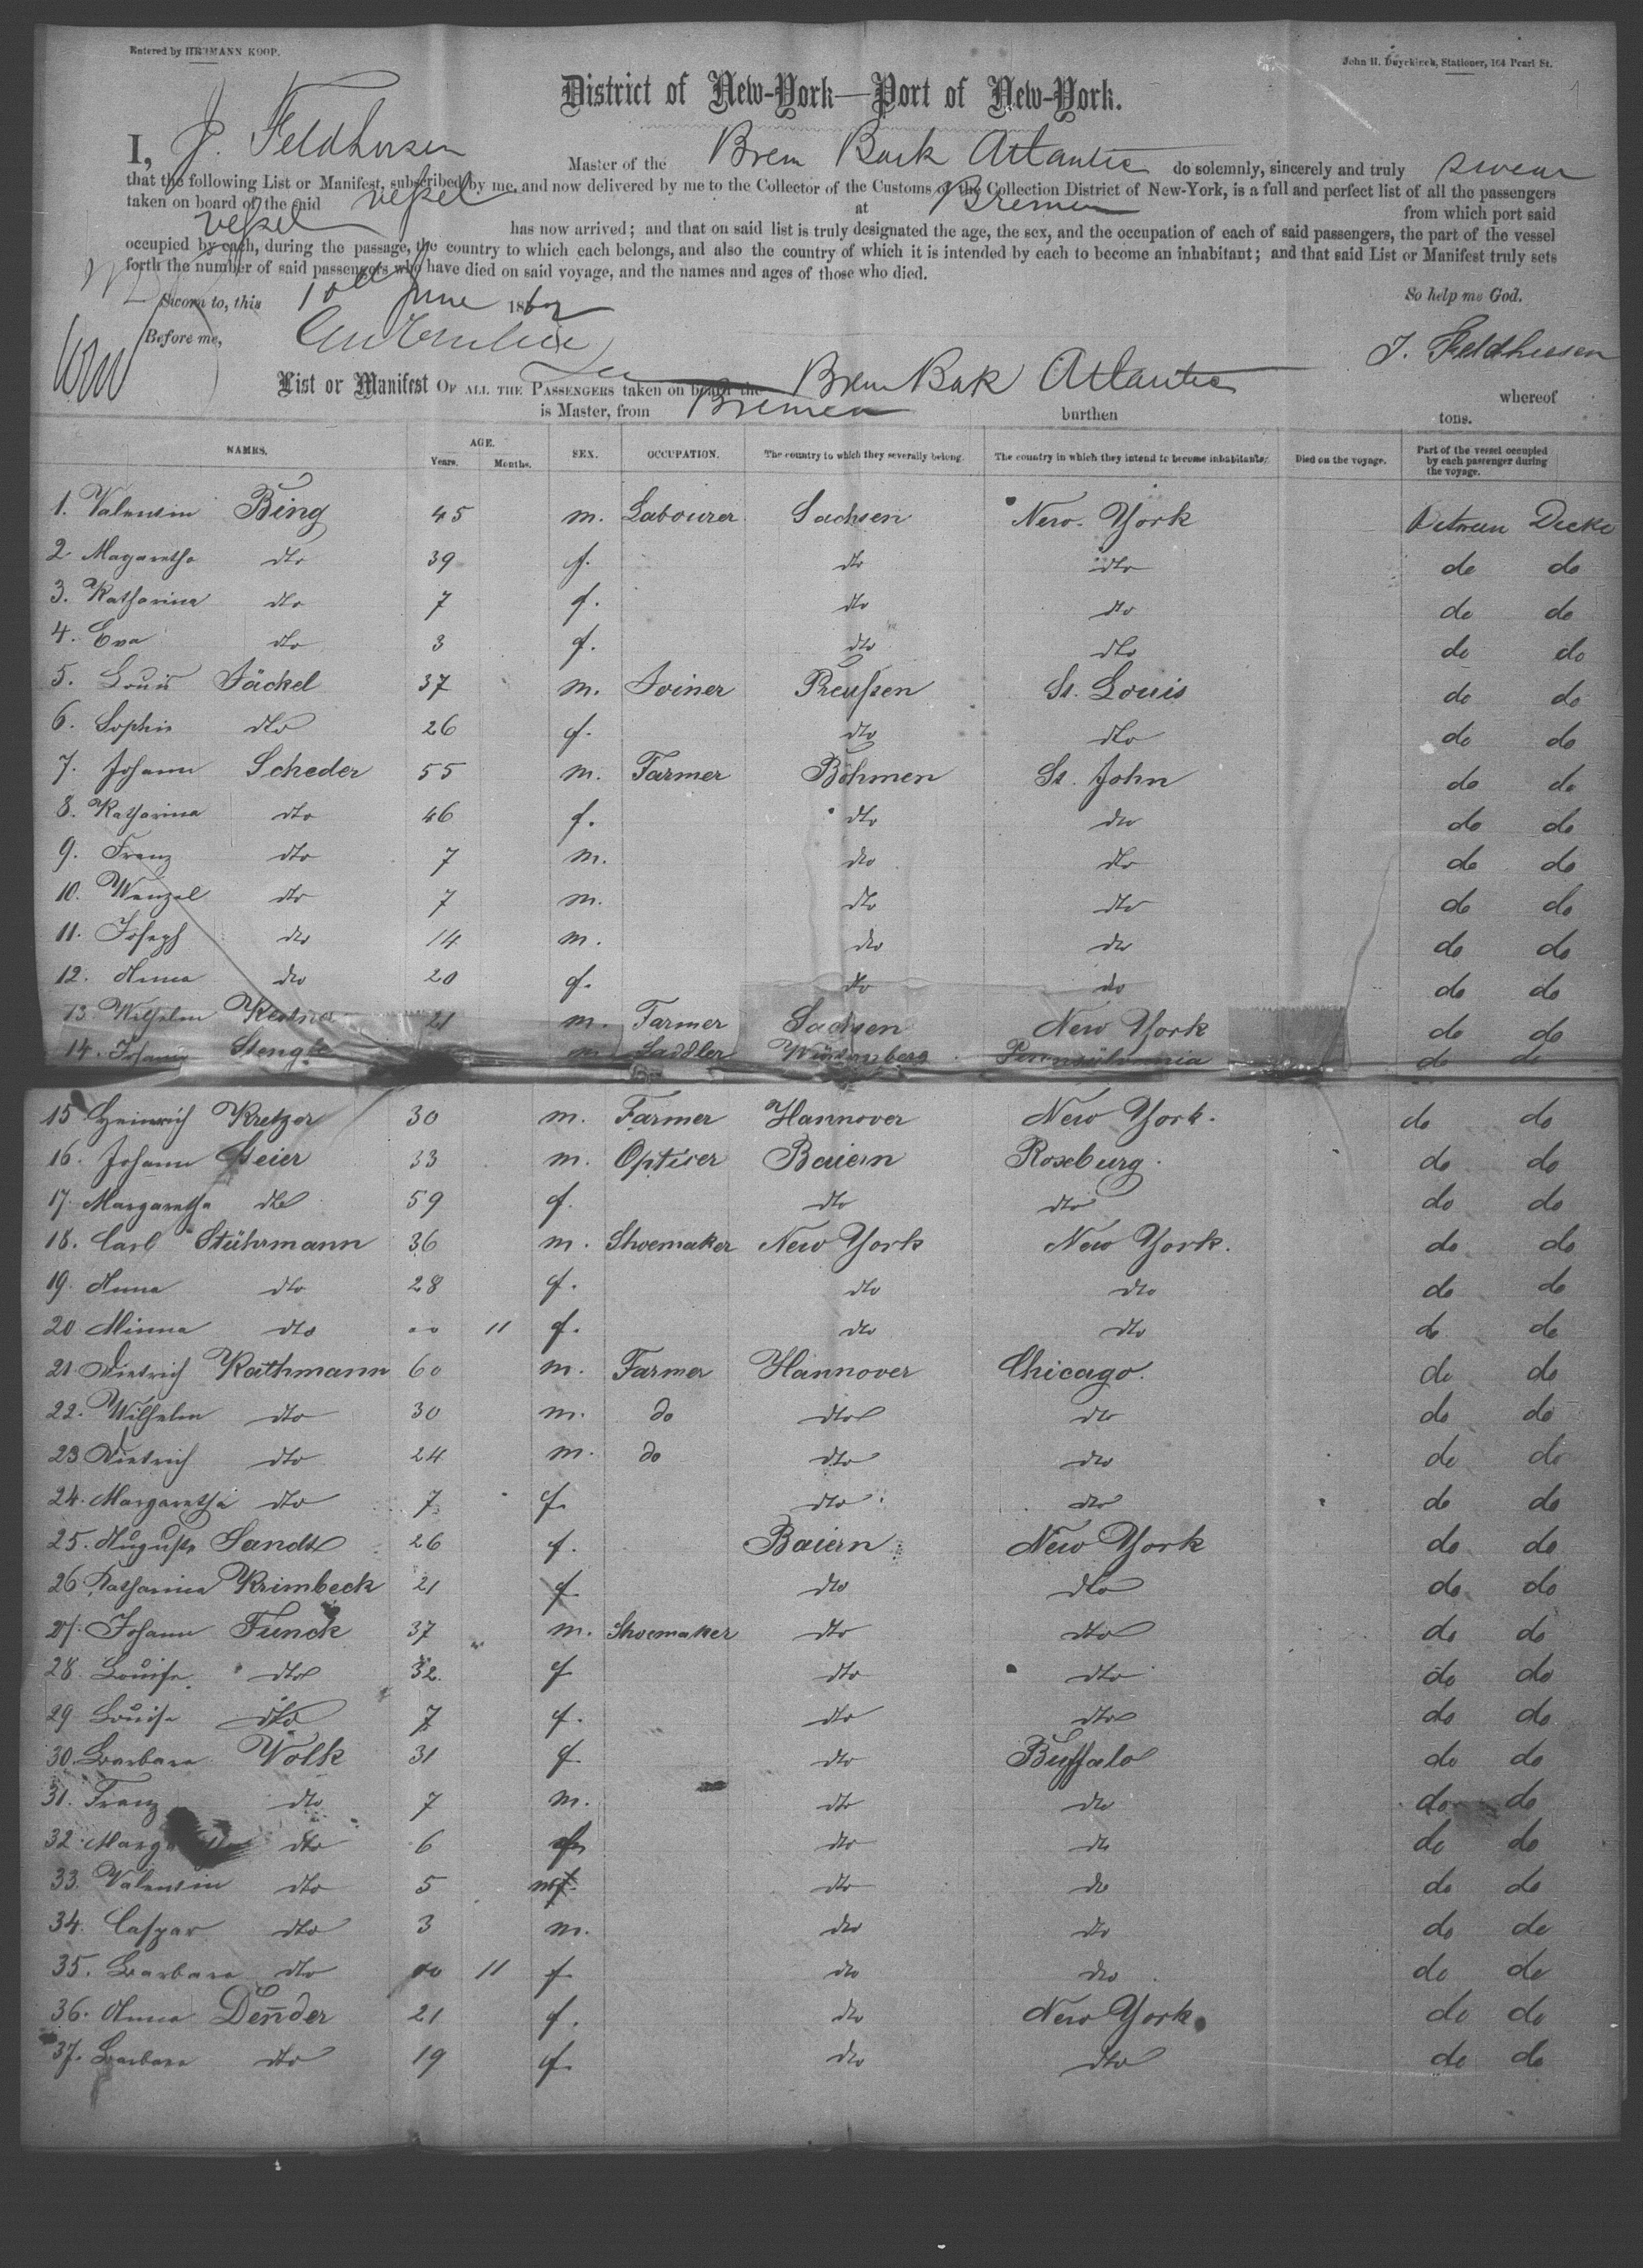 Entered by HERMANN KOOP.
John H. Duyckinck, Stationer, 164 Pearl St.
1
District of New-York—Port of New-York.
I, J. Feldhusen Master of the Brem Bark Atlantic do solemnly, sincerely and truly swear
that the following List or Manifest, subscribed by me, and now delivered by me to the Collector of the Customs of the Collection District of New-York, is a full and perfect list of all the passengers
taken on board of the said vessel at Bremen from which port said
vessel has now arrived; and that on said list is truly designated the age, the sex, and the occupation of each of said passengers, the part of the vessel
occupied by each, during the passage, the country to which each belongs, and also the country of which it is intended by each to become an inhabitant; and that said List or Manifest truly sets
forth the number of said passengers who have died on said voyage, and the names and ages of those who died.
Sworn to, this 10th June 186 So help me God.
Before me, J. Feldhusen
List or Manifest OF ALL THE PASSENGERS taken on board the Brem Bark Atlantic whereof
is Master, from Bremen burthen tons.
NAMES. AGE. Years. Months. SEX. OCCUPATION. The country to which they severally belong. The country in which they intend to become inhabitants. Died on the voyage. Part of the vessel occupied by each passenger during the voyage.
1. Valentin Bing 45 m. Labourer Sachsen New-York Between Decks
2. Magaretha dto 39 f. dto dto do do
3. Katharina dto 7 f. dto dto do do
4. Eva dto 3 f. dto dto do do
5. Louis Jäckel 37 m. Joiner Preußen St. Louis do do
6. Sophie dto 26 f. dto dto do do
7. Johann Scheder 55 m. Farmer Böhmen St. John do do
8. Katharina dto 46 f. dto dto do do
9. Franz dto 7 m. dto dto do do
10. Wenzel dto 7 m. dto dto do do
11. Joseph dto 14 m. dto dto do do
12. Anna dto 20 f. dto dto do do
13. Wilhelm 21 m. Farmer Sachsen New York do do
14. Johann Stengle m Saddler Würtemberg Pennsilvania do do
15 Heinrich Kretzer 30 m. Farmer Hannover New York. do do
16. Johann Geier 33 m. Optiser Baiern Roseburg. do do
17. Margaretha dto 59 f. dto dto do do
18. Carl Stührmann 36 m. Shoemaker New York New York. do do
19. Anna dto 28 f. dto dto do do
20. Minna dto 00 11 f. dto dto do do
21. Dietrich Rathmann 60 m. Farmer Hannover Chicago. do do
22. Wilhelm dto 30 m. do dto dto do do
23. Dietrich dto 24 m. do dto dto do do
24. Margaretha dto 7 f. dto dto do do
25. Auguste Sandt 26 f. Baiern New York do do
26 Katharina Krimbeck 21 f dto dto do do
27. Johann Funck 37 m. Shoemaker dto dto do do
28. Louise dto 32 f dto dto do do
29 Louise dto 7 f. dto dto do do
30. Barbara Volk 31 f dto Buffalo do do
31. Franz dto 7 m. dto dto do do
32. dto 6 f. dto dto do do
33. Valentin dto 5 m. dto dto do do
34. Caspar dto 3 m. dto dto do do
35. Barbara dto 00 11 f dto dto do do
36. Anna Den̄der 21 f. dto New York do do
37. Barbara dto 19 f. dto dto do do